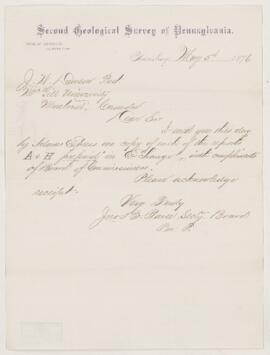 Second Geological Survey of Pennsylvania.
Harrisburg, May 5th 1876
J. W. Dawson
McGill University
Montreal, Canada
Dear Sir
I send you this day
by Adams Express one copy of each of the reports
A & H prepaid in Exchange, with compliments
of Board of Commissioners.
Please acknowledge
receipt.
Very Truly
Secty. Board